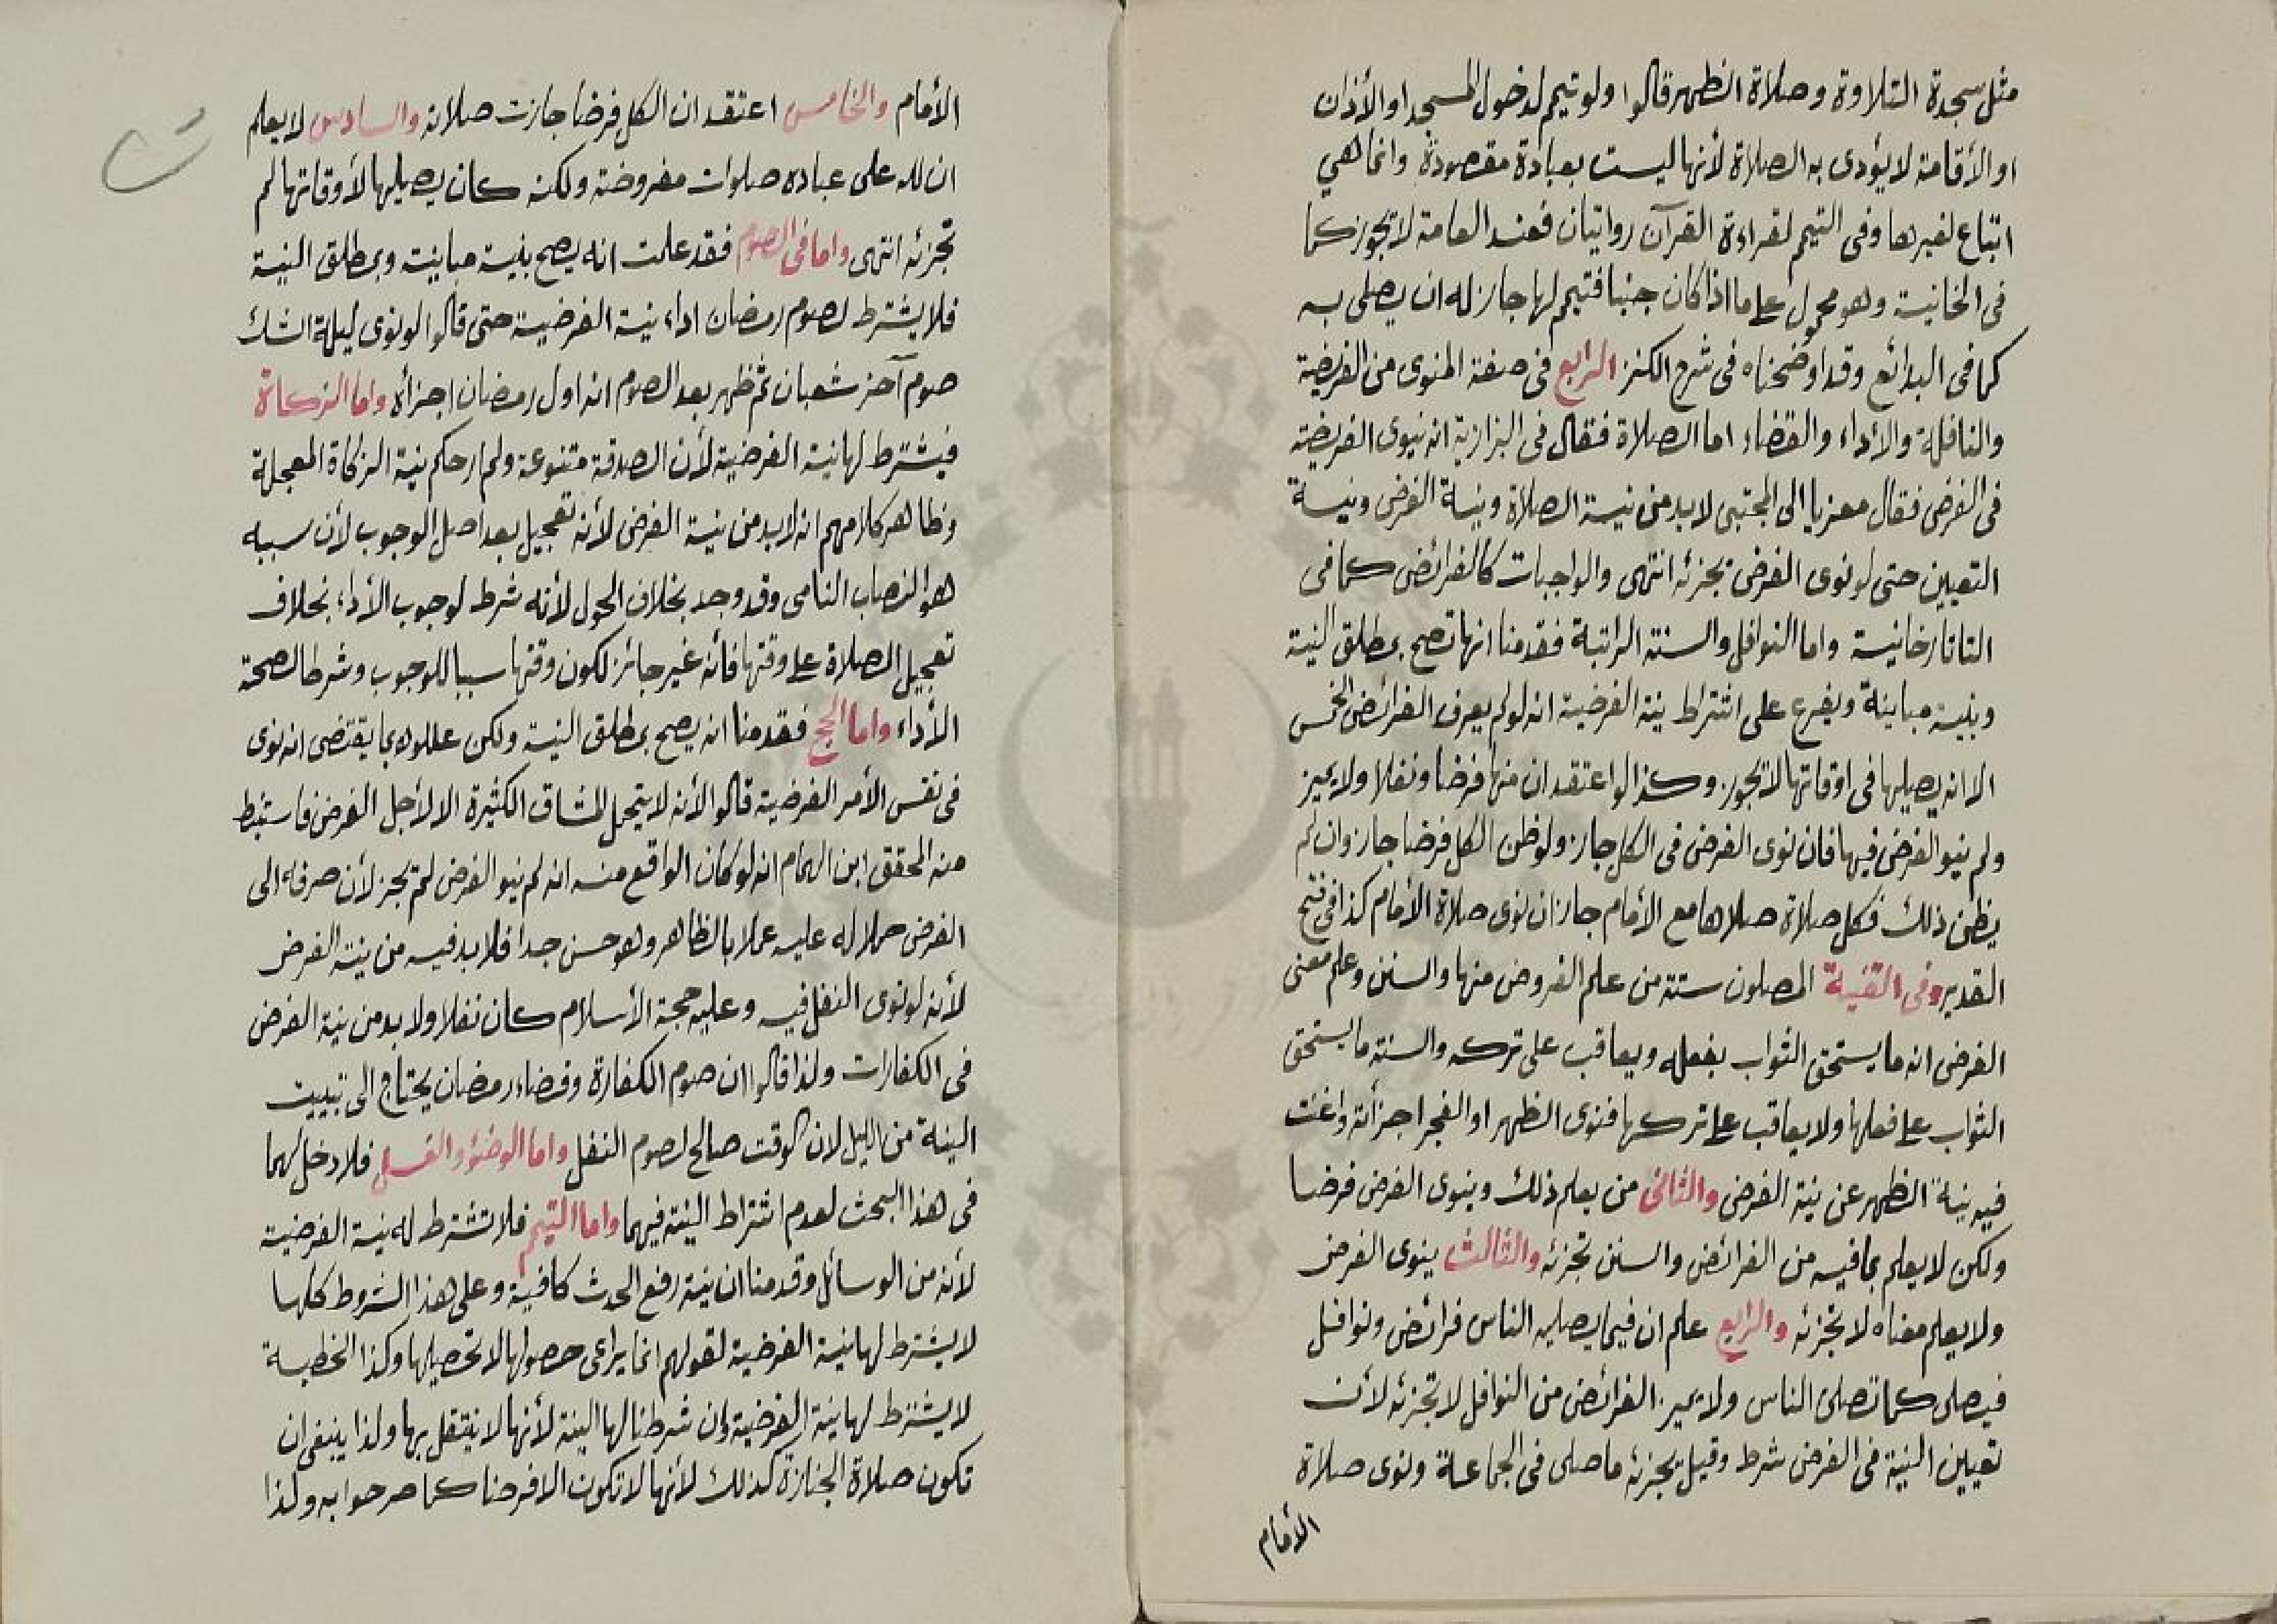 مثل سجدة التلاوة وصلاة الظهر قالوا ولو تيمم لدخول المسجد او الأذان
او الأقامة لا يؤدى به الصلاة لأنها ليست بعبادة مقصودة وانما هي
اتباع لغيرها وفى التيمم لقراءة القرآن روايتان فعند العامة لا تجوز كما
فى الخانية وهو محمول على ما اذا كان جنبا فتيمم لها جاز له ان يصلى به
كما فى البدائع وقد اوضحناه فى شرح الكنز الرابع فى صفة المنوى من الفريضة
والنافلة والأداء والقضاء اما الصلاة فقال فى البزازية انه ينوى الفريضة
فى الفرض فقال معزيا الى المجتبى لا بد من نية الصلاة ونية الفرض ونية
التعيين حتى لو نوى الفرض يجزئه انتهى والواجبات كالفرائض كما فى
التاتارخانية واما النوافل والسنة الراتبة فقدمنا انها تصح بمطلق النية
وبنية مباينة ويفرع على اشتراط نية الفرضية انه لو لم يعرف الفرائض الخمس
الا انه يصليها فى اوقاتها لا تجوز وكذا لو اعتقد ان منها فرضا ونفلا ولا يميز
ولم ينو الفرض فيها فان نوى الفرض فى الكل جاز ولو ظن الكل فرضا جاز وان لم
يظن ذلك فكل صلاة صلاها مع الأمام جاز ان نوى صلاة الأمام كذا فى فتح
القدير وفى القنية المصلون ستة من علم الفروض منها والسنن وعلم معنى
الفرض انه ما يستحق الثواب بفعله ويعاقب على تركه والسنة ما يستحق
الثواب على فعلها ولا يعاقب على تركها فنوى الظهر او الفجر اجزأته واغنت
فيه نية الظهر عن نية الفرض والثانى من يعلم ذلك وينوى الفرض فرضا
ولكن لا يعلم بما فيه من الفرائض والسنن تجزئه والثالث ينوى الفرض
ولا يعلم معناه لا تجزئه والرابع علم ان فيما يصليه الناس فرائض ونوافل
فيصلى كما تصلى الناس ولا يميز الفرائض من النوافل لا تجزئه لأن
تعيين النية فى الفرض شرط وقيل يجزئه ما صلى فى الجماعة ونوى صلاة
الأمام
الأمام والخامس اعتقد ان الكل فرضا جازت صلاته والسادس لا يعلم
ان لله على عباده صلوات مفروضة ولكنه كان يصليها لأوقاتها لم
تجزئه انتهى واما فى الصوم فقد علمت انه يصح بنية مباينة وبمطلق النية
فلا يشترط لصوم رمضان اداء نية الفرضية حتى قالوا لو نوى ليلة الشك
صوم آخر شعبان ثم ظهر بعد الصوم انه اول رمضان اجزأه واما الزكاة
فيشترط لها نية الفرضية لأن الصدقة متنوعة ولم ار حكم نية الزكاة المعجلة
وظاهر كلامهم انه لا بد من نية الفرض لأنه تعجيل بعد اصل الوجوب لأن سببه
هو النصاب النامى وقد وجد بخلاف الحول لأنه شرط لوجوب الأداء بخلاف
تعجيل الصلاة على وقتها فأنه غير جائز لكون وقتها سببا للوجوب وشرطا لصحة
الأداء واما الحج فقدمنا انه يصح بمطلق النية ولكن عللوه بما يقتضى انه نوى
فى نفس الأمر الفرضية قالوا لأنه لا يتحمل المشاق الكثيرة الا لأجل الفرض فاستنبط
منه المحقق ابن الهمام انه لو كان الواقع منه انه لم ينو الفرض لم تجز لأن صرفه الى
الفرض حملا له عليه عملا بالظاهر وهو حسن جدا فلا بد فيه من نية الفرض
لأنه لو نوى النفل فيه وعليه حجة الأسلام كان نفلا ولا بد من نية الفرض
فى الكفارات ولذا قالوا ان صوم الكفارة وقضاء رمضان يحتاج الى تبييت
النية من الليل لان الوقت صالح لصوم النفل واما الوضؤ والغسل فلا دخل لهما
فى هذا البحث لعدم اشتراط النية فيهما واما التيمم فلا تشترط له نية الفرضية
لأنه من الوسائل وقدمنا ان نية رفع الحدث كافية وعلى هذا الشروط كلها
لا يشترط لها نية الفرضية لقولهم انما يراعى حصولها لا تحصيلها وكذا الخطبة
لا يشترط لها نية الفرضية وان شرطنا لها النية لأنها لا ينتقل بها ولذا ينبغى ان
تكون صلاة الجنازة كذلك لأنها لا تكون الا فرضا كما صرحوا به ولذا